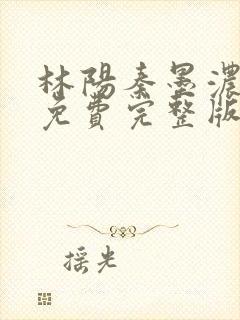 林陽秦墨濃
免費完整版
摇光